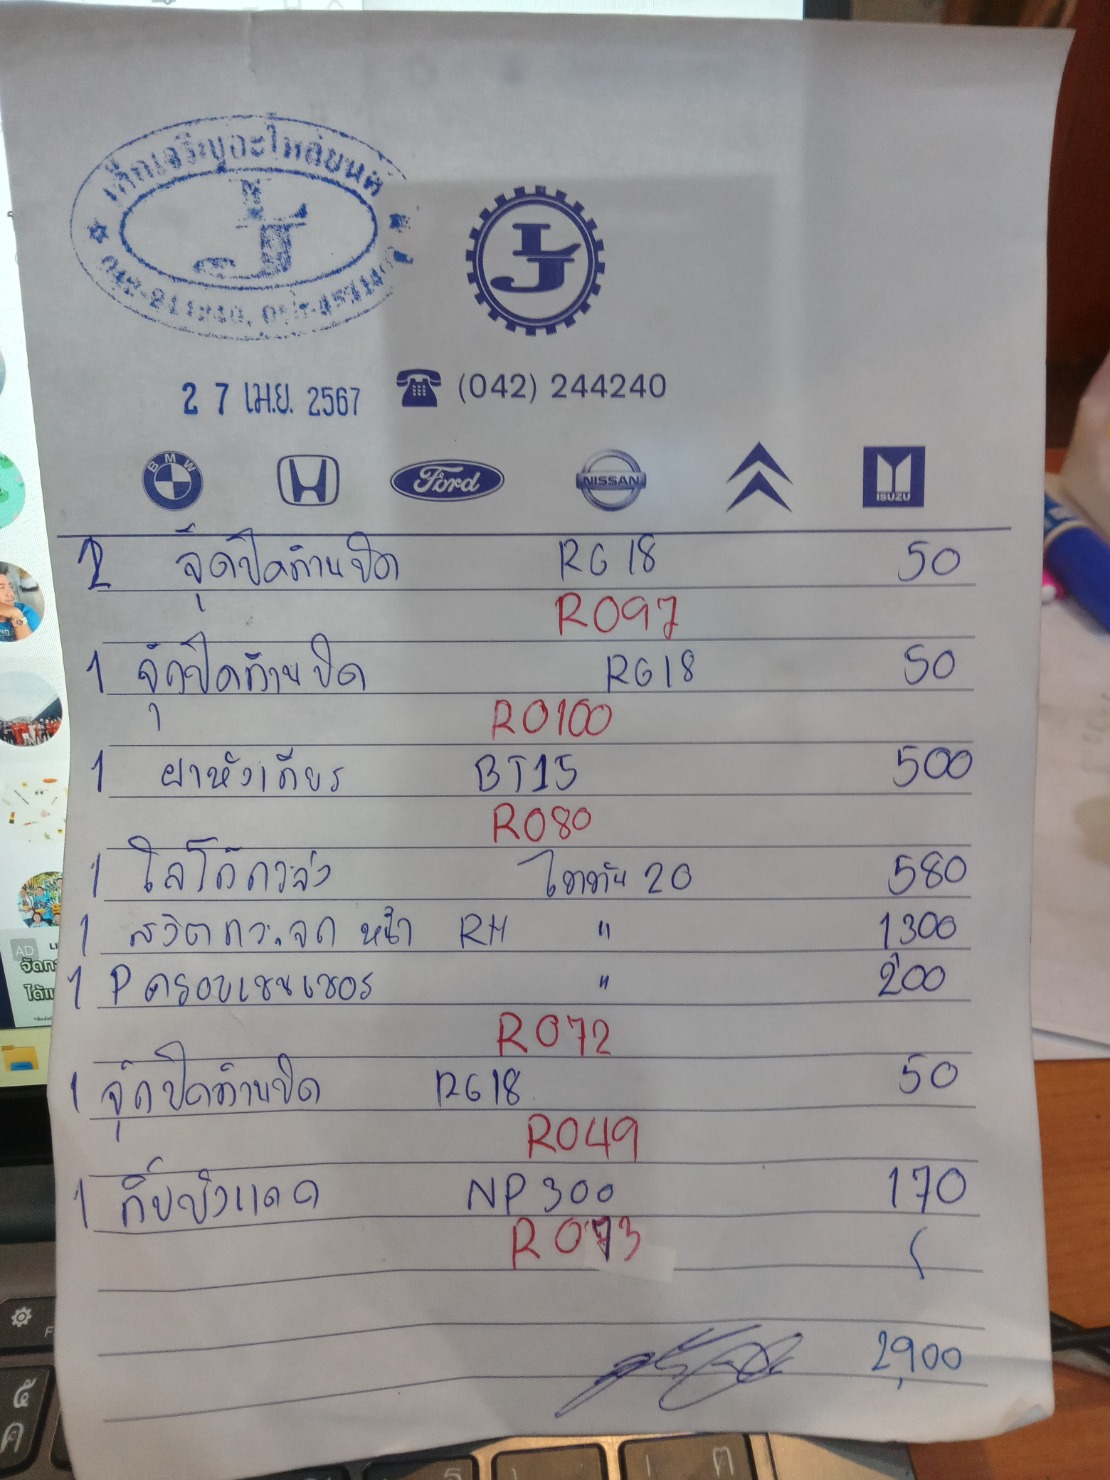 เค็กเจริญอะไหล่ยนต์
LJ
LJ
27 เม.ย. 2567 (042) 244240
BMW Ford NISSAN ISUZU
จุ๊ดปิดก้านปัด RG18 50
R097
1 จุ๊ดปิดก้านปัด RG18 50
R0100
1 ฝาหังเกียร BT15 500
R080
1 โลโก้กระจัง ไททัน 20 580
1 สวิตกระจก หน้า RH " 1300
1 P ครอบเซนเซอร " 200
R072
1 จุ๊ดปิดก้านปัด RG18 50
R049
1 กิ๊บบังแดด NP300 170
R073
2,900
AD